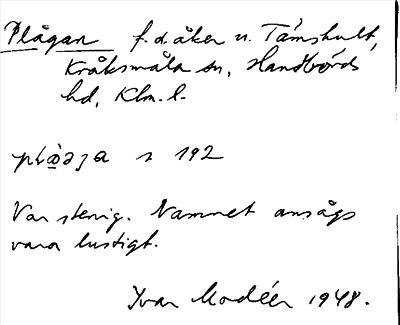 Plågan f.d. åker u. Tämshult,
Kråksmåla sn, Handbörds
hd, Klm. l.
s 192
Var stenig. Namnet ansågs
vara lustigt.
Ivar Modéer 1948.